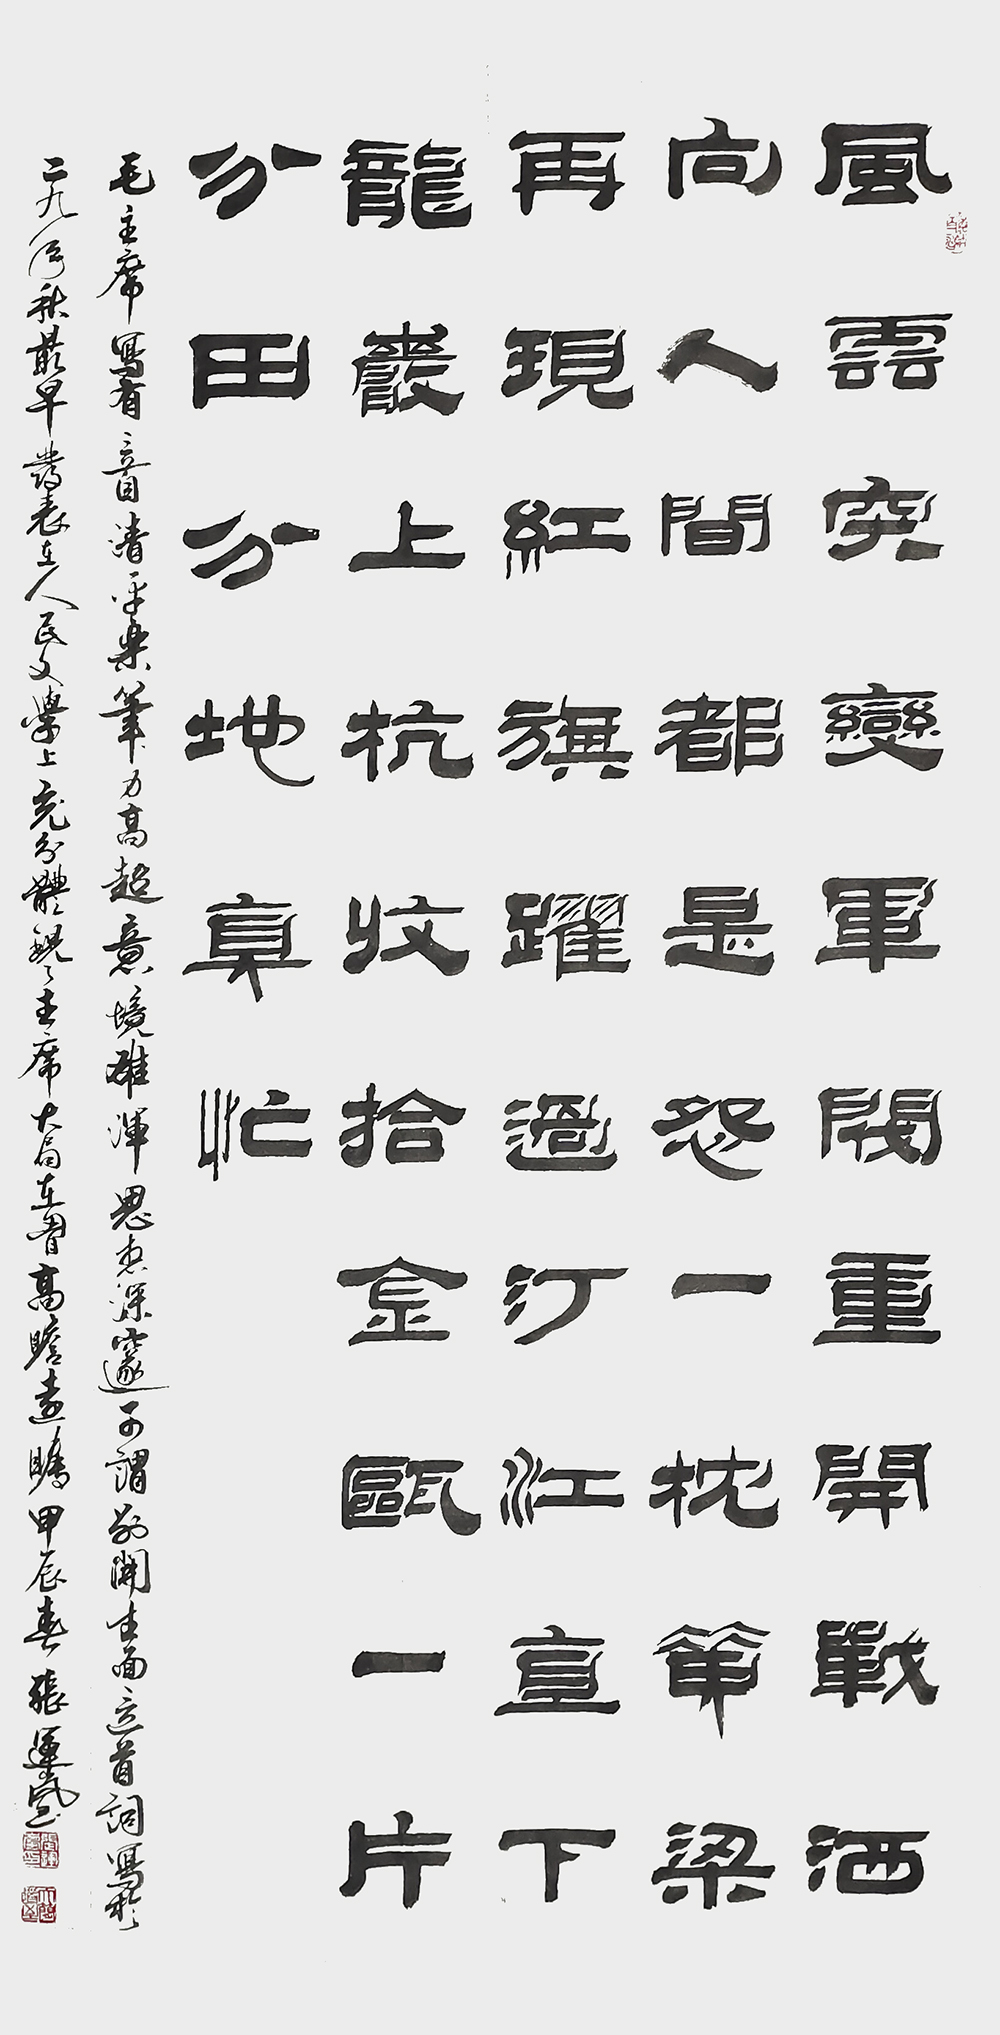 風雲突變軍閥重開戰洒
向人間都是怨一枕黄粱
再現紅旗躍過汀江直下
龍巖上杭收拾金甌一片
分田分地真忙
毛主席寫有音清平樂筆力高超意境雄渾思想深邃可謂別開生面這首詞寫於
二九年秋最早發表在人民文學上充分體現了主席大局在胸高瞻遠矚甲辰春張運